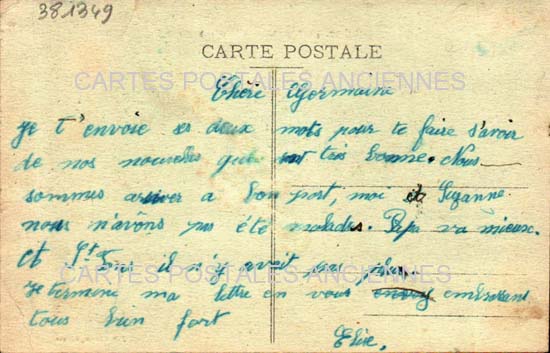 381349
CARTE POSTALE
CARTES POSTALES ANCIENNES
Chère Germaine
Je t'envoie ses deux mots pour te faire s'avoir
de nos nouvelles qui sont très bonne. Nous
sommes arriver a bon port, moi et Suzanne
nous n'avons pas été malades. Papa va mieux.
et il n'y avait pas
CARTES POSTALES ANCIENNES
Je termine ma lettre en vous embrassant
tous bien fort
Elise.